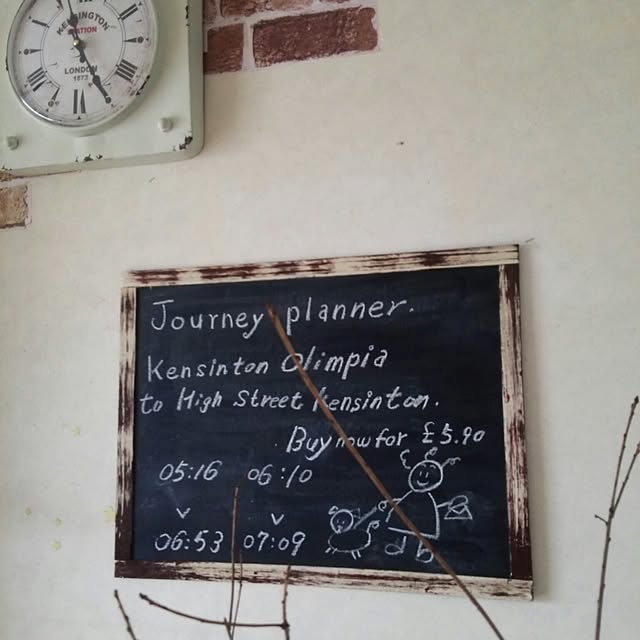 KENSINGTON
STATION
LONDON
1873
Journey planner.
Kensinton Olimpia
to High Street Kensinton.
Buy now for £5.90
05:16 06:10
06:53 07:09